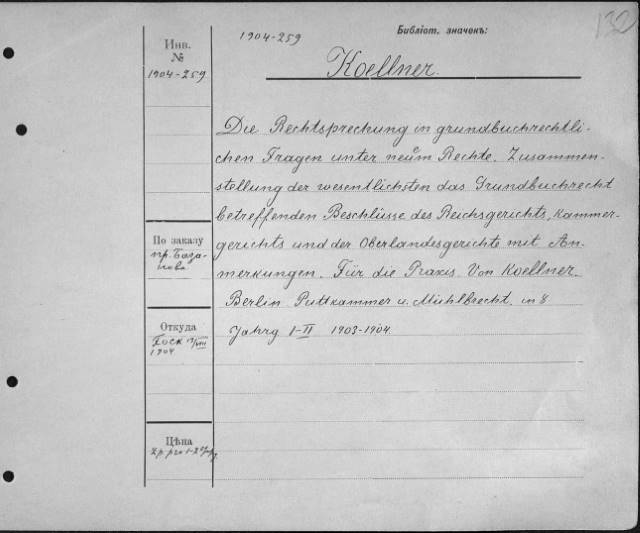 132
Библіот. значекъ:
1904-259
Инв.
№
1904-259
Koellner.
Die Rechtsprechung in grundbuchrechtli-
chen Fragen unter neuem Rechte. Zusammen-
stellung der wesentlichsten das Grundbuchrecht
betreffenden Beschlüsse des Reichsgerichts, Kammer-
gerichts und der Oberlandesgerichte mit An-
merkungen. Für die Praxis. Von Koellner.
Berlin Puttkammer u. Mühlbrecht. in 8
Jahrg I-II 1903-1904.
По заказу
пр. База-
нова
Откуда
Госк
1904
Цѣна